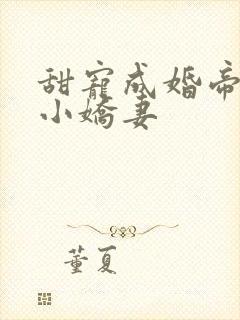 甜寵成婚帝
小嬌妻
董夏